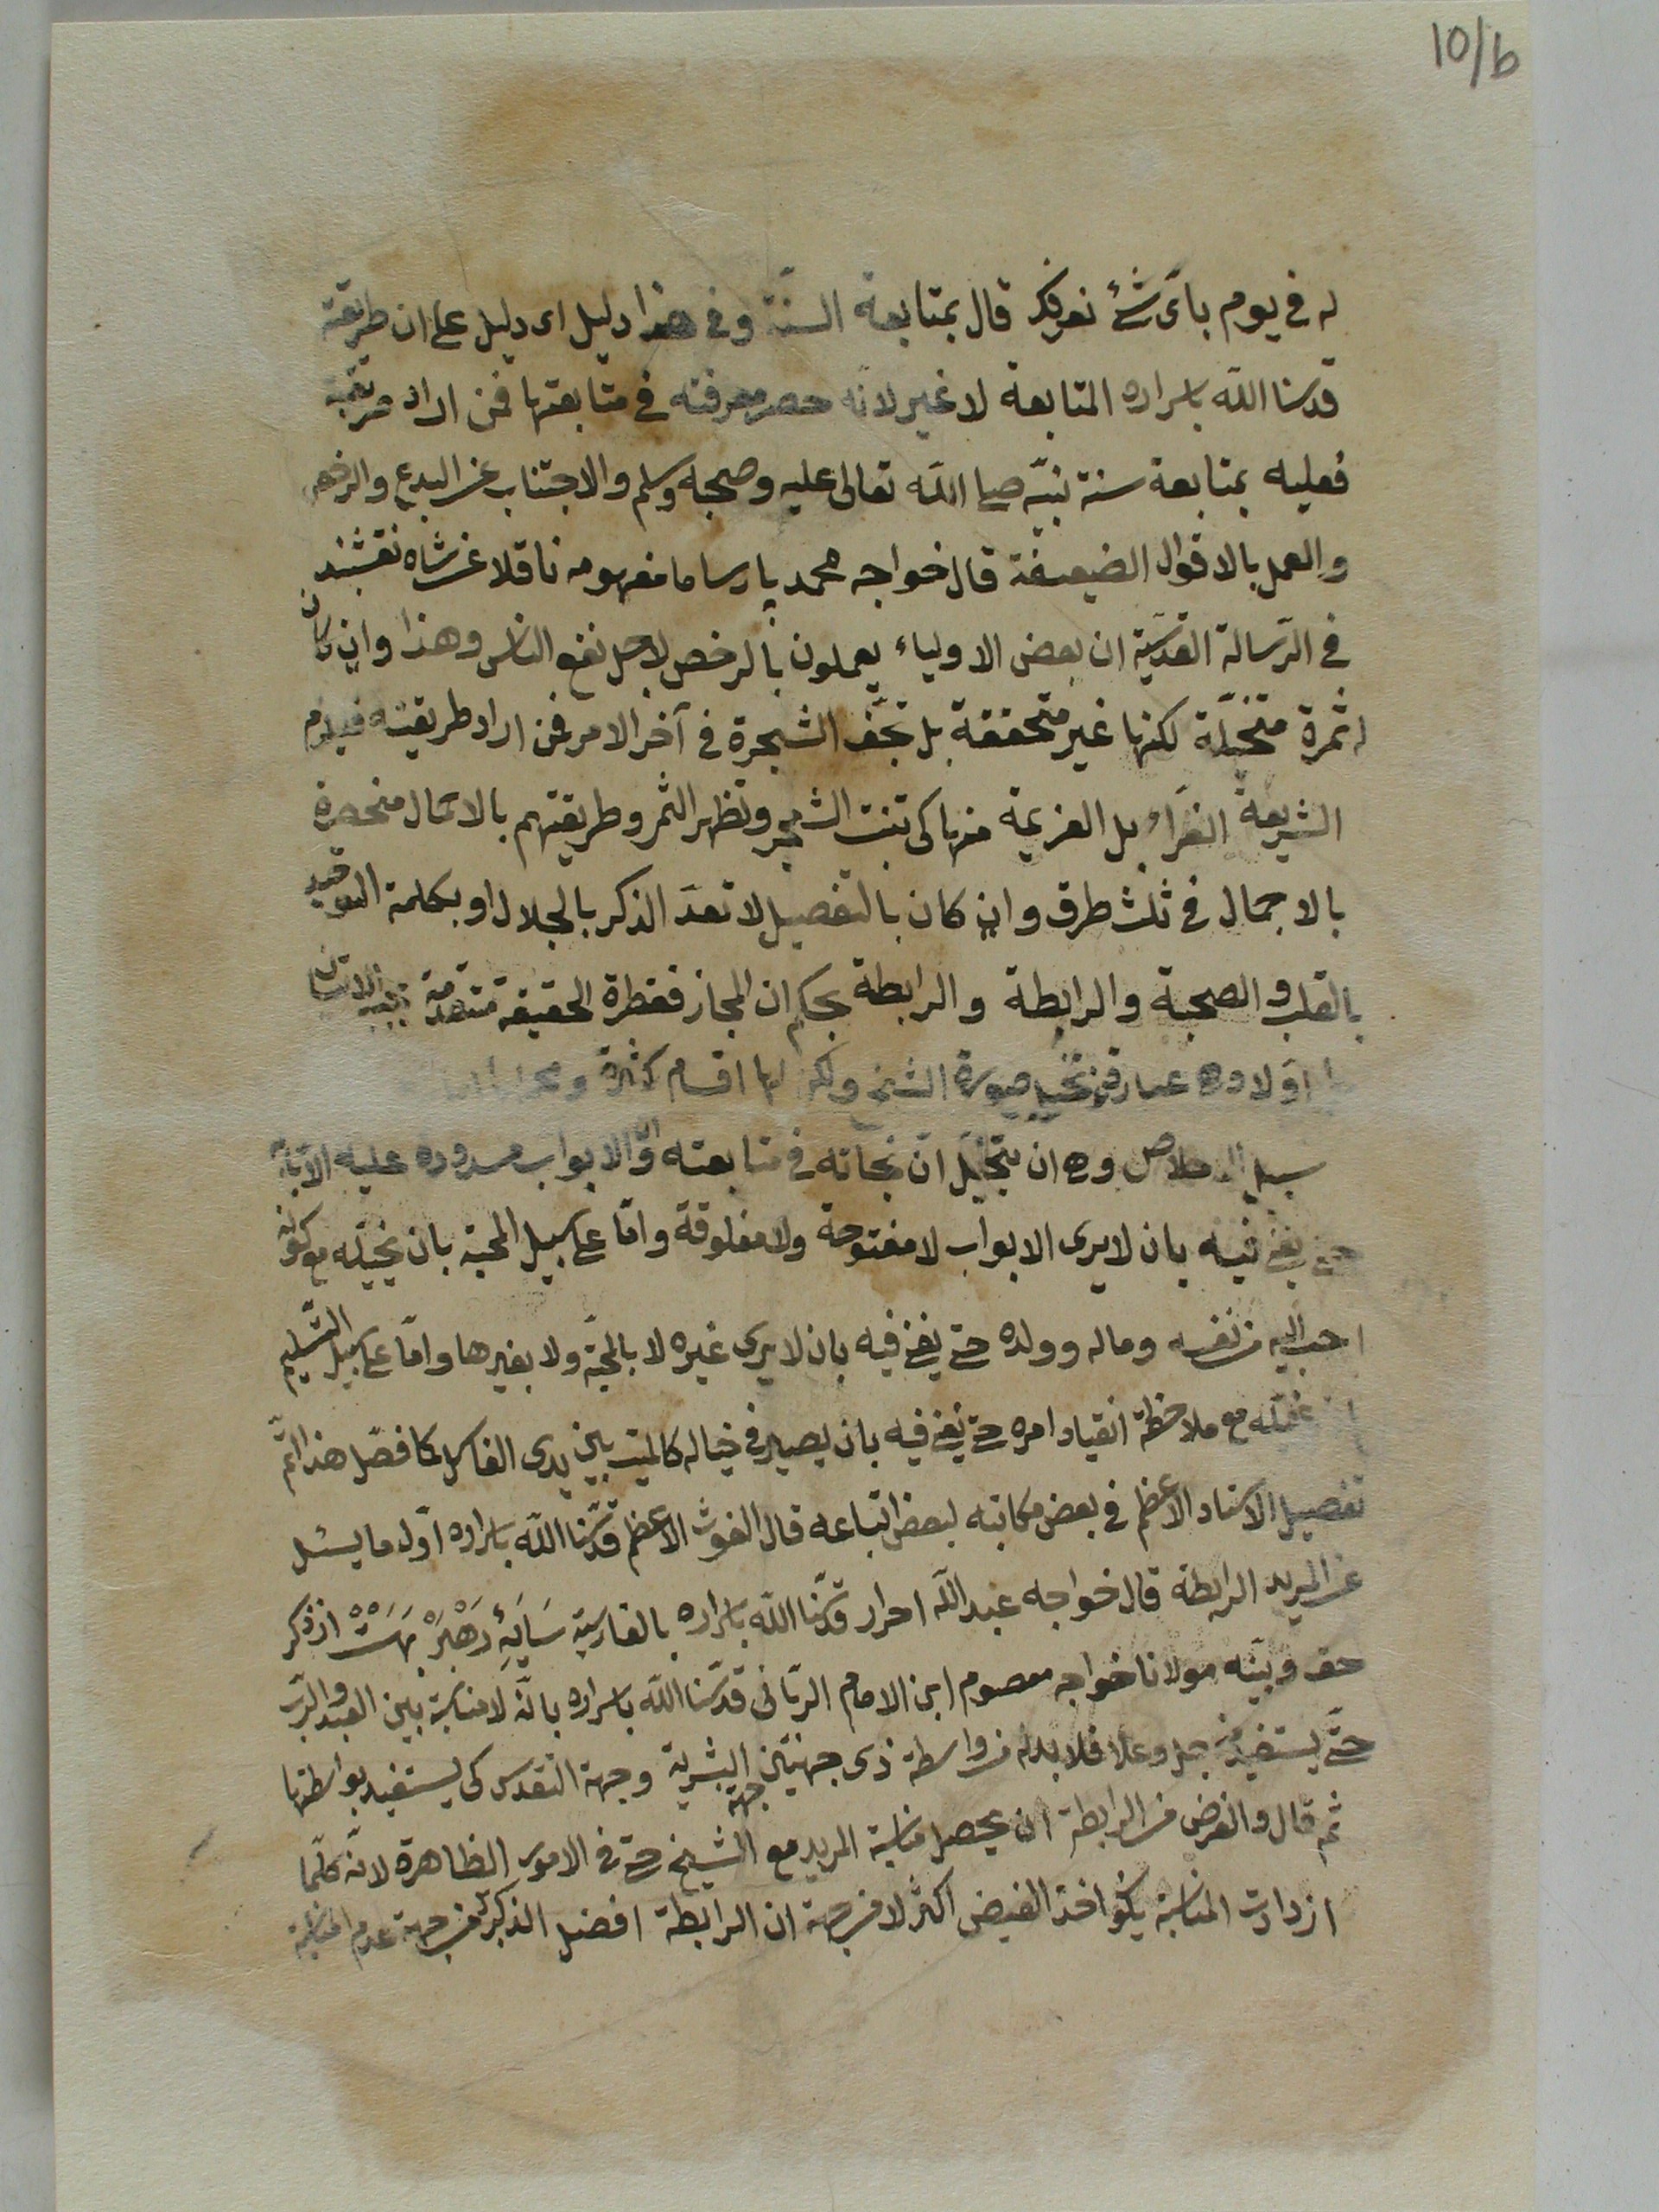 10/b
له في يوم بأى شئ نعرفكر قال بمتابعة السنّة وفي هذا دليل اى دليل على ان طريقته
قدسنا الله باسراره المتابعة لا غير لانّه حصر معرفته في متابعتها فمن اراد
فعليه بمتابعة سنة نبيّه صلى الله تعالى عليه وصحبه وسلم والاجتناب عن البدع والرخص
والعمل بالاقوال الضعيفة قال خواجه محمد پارسا ما مفهومه ناقلا عن شاه نقشبند
في الرّسالة القدسيّة ان بعض الاولياء يعملون بالرخص لاجل نفع الناس وهذا وان كان
له ثمرة متخيّلة لكنها غير متحققة بل تجفّ الشجرة في آخر الامر فمن اراد طريقته فيلزم
الشريعة الغرّاء بل العزيمة منها كى تنبت الشجر وتظهر الثمر وطريقتهم بالاكمال منحصرة
بالاجمال في ثلث طرق وان كان بالتفصيل لا تعدّ الذكر بالجلال او بكلمة التوحيد
بالقلب والصحبة والرابطة والرابطة بحكم ان المجاز قنطرة الحقيقة متقدمة
اوّلا وهى عبارة عن تخيل صورة الشيخ ولكن لها اقسام كثيرة
سبيل الاخلاص وهى ان يتخيّل انّ نجاته في متابعته وانّ الابواب مسدودة عليه الّا بابه
حتى يفنى فيه بان لا يرى الابواب لا مفتوحة ولا مغلوقة وامّا على سبيل المحبّة بان يتخيّله مع كونه
احب اليه من نفسه وماله وولده حتى يفنى فيه بان لا يرى غيره لا بالمحبّة ولا بغيرها وامّا على سبيل التسليم
يتخيّله مع ملاحظة انقياد امره حتى يفنى فيه بان يصير في خياله كالميت بين يدى الغاسل كما فصّل هذا اتمّ
تفصيل الاستاد الاعظم في بعض مكاتبه لبعض اتباعه قال الغوث الاعظم قدّسنا الله باسراره اوّل ما يسئل
عن المريد الرابطة قال خواجه عبد الله احرار قدّسنا الله باسراره بالفارسيّة سَايَهٔ رَهْبَرْ بِهَسْتْ از ذكر
حق وبيّنه مولانا خواجه معصوم ابن الامام الربّانى قدّسنا الله باسراره بانّه لا مناسبة بين العبد والربّ
حتّى يستفيد منه جل وعلا فلا بد له من واسطة ذى جهتين جهة البشرية وجهة التقدس كى يستفيد بواسطتها
ثم قال والغرض من الرابطة ان يحصل مناسبة المريد مع الشيخ حتى في الامور الظاهرة لانّه كلّما
ازدادت المناسبة يكون اخذ الفيض اكثر لا من جهة ان الرابطة افضل الذكر بل من جهة عدم المناسبة